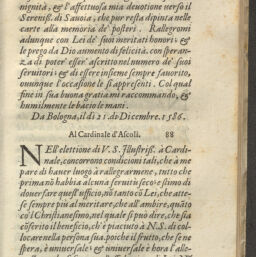 nignità, & l'affettuosa mia deuotione verso il
Sereniss. di Sauoia, che pur resta dipinta nelle
carte alla memoria de' posteri. Rallegromi
adunque con Lei de' suoi meritati honori; &
le prego da Dio aumento di felicità. con speran-
za di poter' esser' ascritto nel numero de' suoi
seruitori; & di essere insieme sempre fauorito,
ouunque l'occasione le si appresenti. Col qual
fine in sua buona gratia mi raccommando, &
humilmente le bacio le mani.
Da Bologna, il dì 21. di Decembre. 1586.
Al Cardinale d'Ascoli. 88
NEll' elettione di V. S. Illustriss. à Cardi-
nale, concorrono condicioni tali, che à me
pare di hauer luogo à rallegrarmene, tutto che
prima nō habbia alcuna seruitù seco: sì come di
douer fare quest'ufficio, nō tanto cō Lei, che atte-
se sempre più al meritare, che all'ambire, quāto
cō'l Christianesimo, nel quale si può dire, che sia
cōferito il beneficio, ch'è piaciuto à N.S. di col-
locare nella persona sua. poiche il frutto, che se ne
spera, è vniuersale; & vniuersale è hora l'alle-